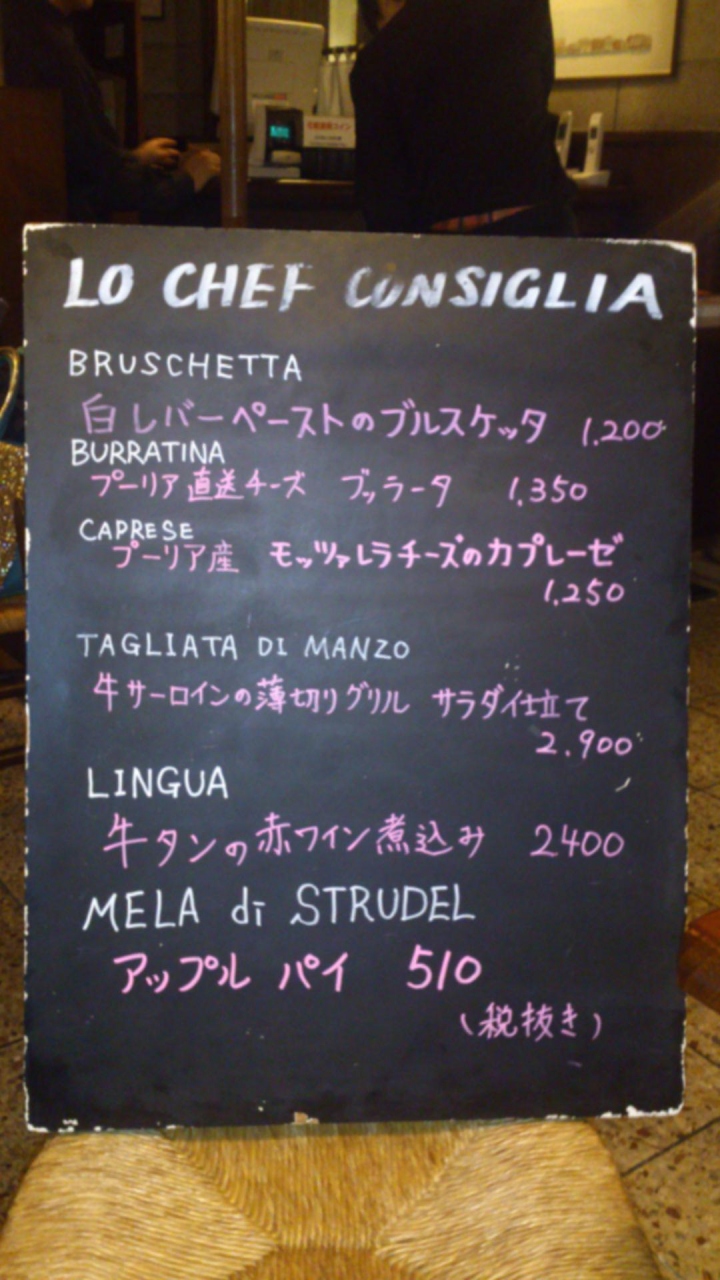 LO CHEF CONSIGLIA
BRUSCHETTA
白レバーペーストのブルスケッタ 1.200
BURRATINA
プーリア直送チーズ ブッラータ 1.350
CAPRESE
プーリア産 モッツァレラチーズのカプレーゼ
1.250
TAGLIATA DI MANZO
牛サーロインの薄切りグリル サラダ仕立て
2.900
LINGUA
牛タンの赤ワイン煮込み 2400
MELA di STRUDEL
アップル パイ 510
(税抜き)